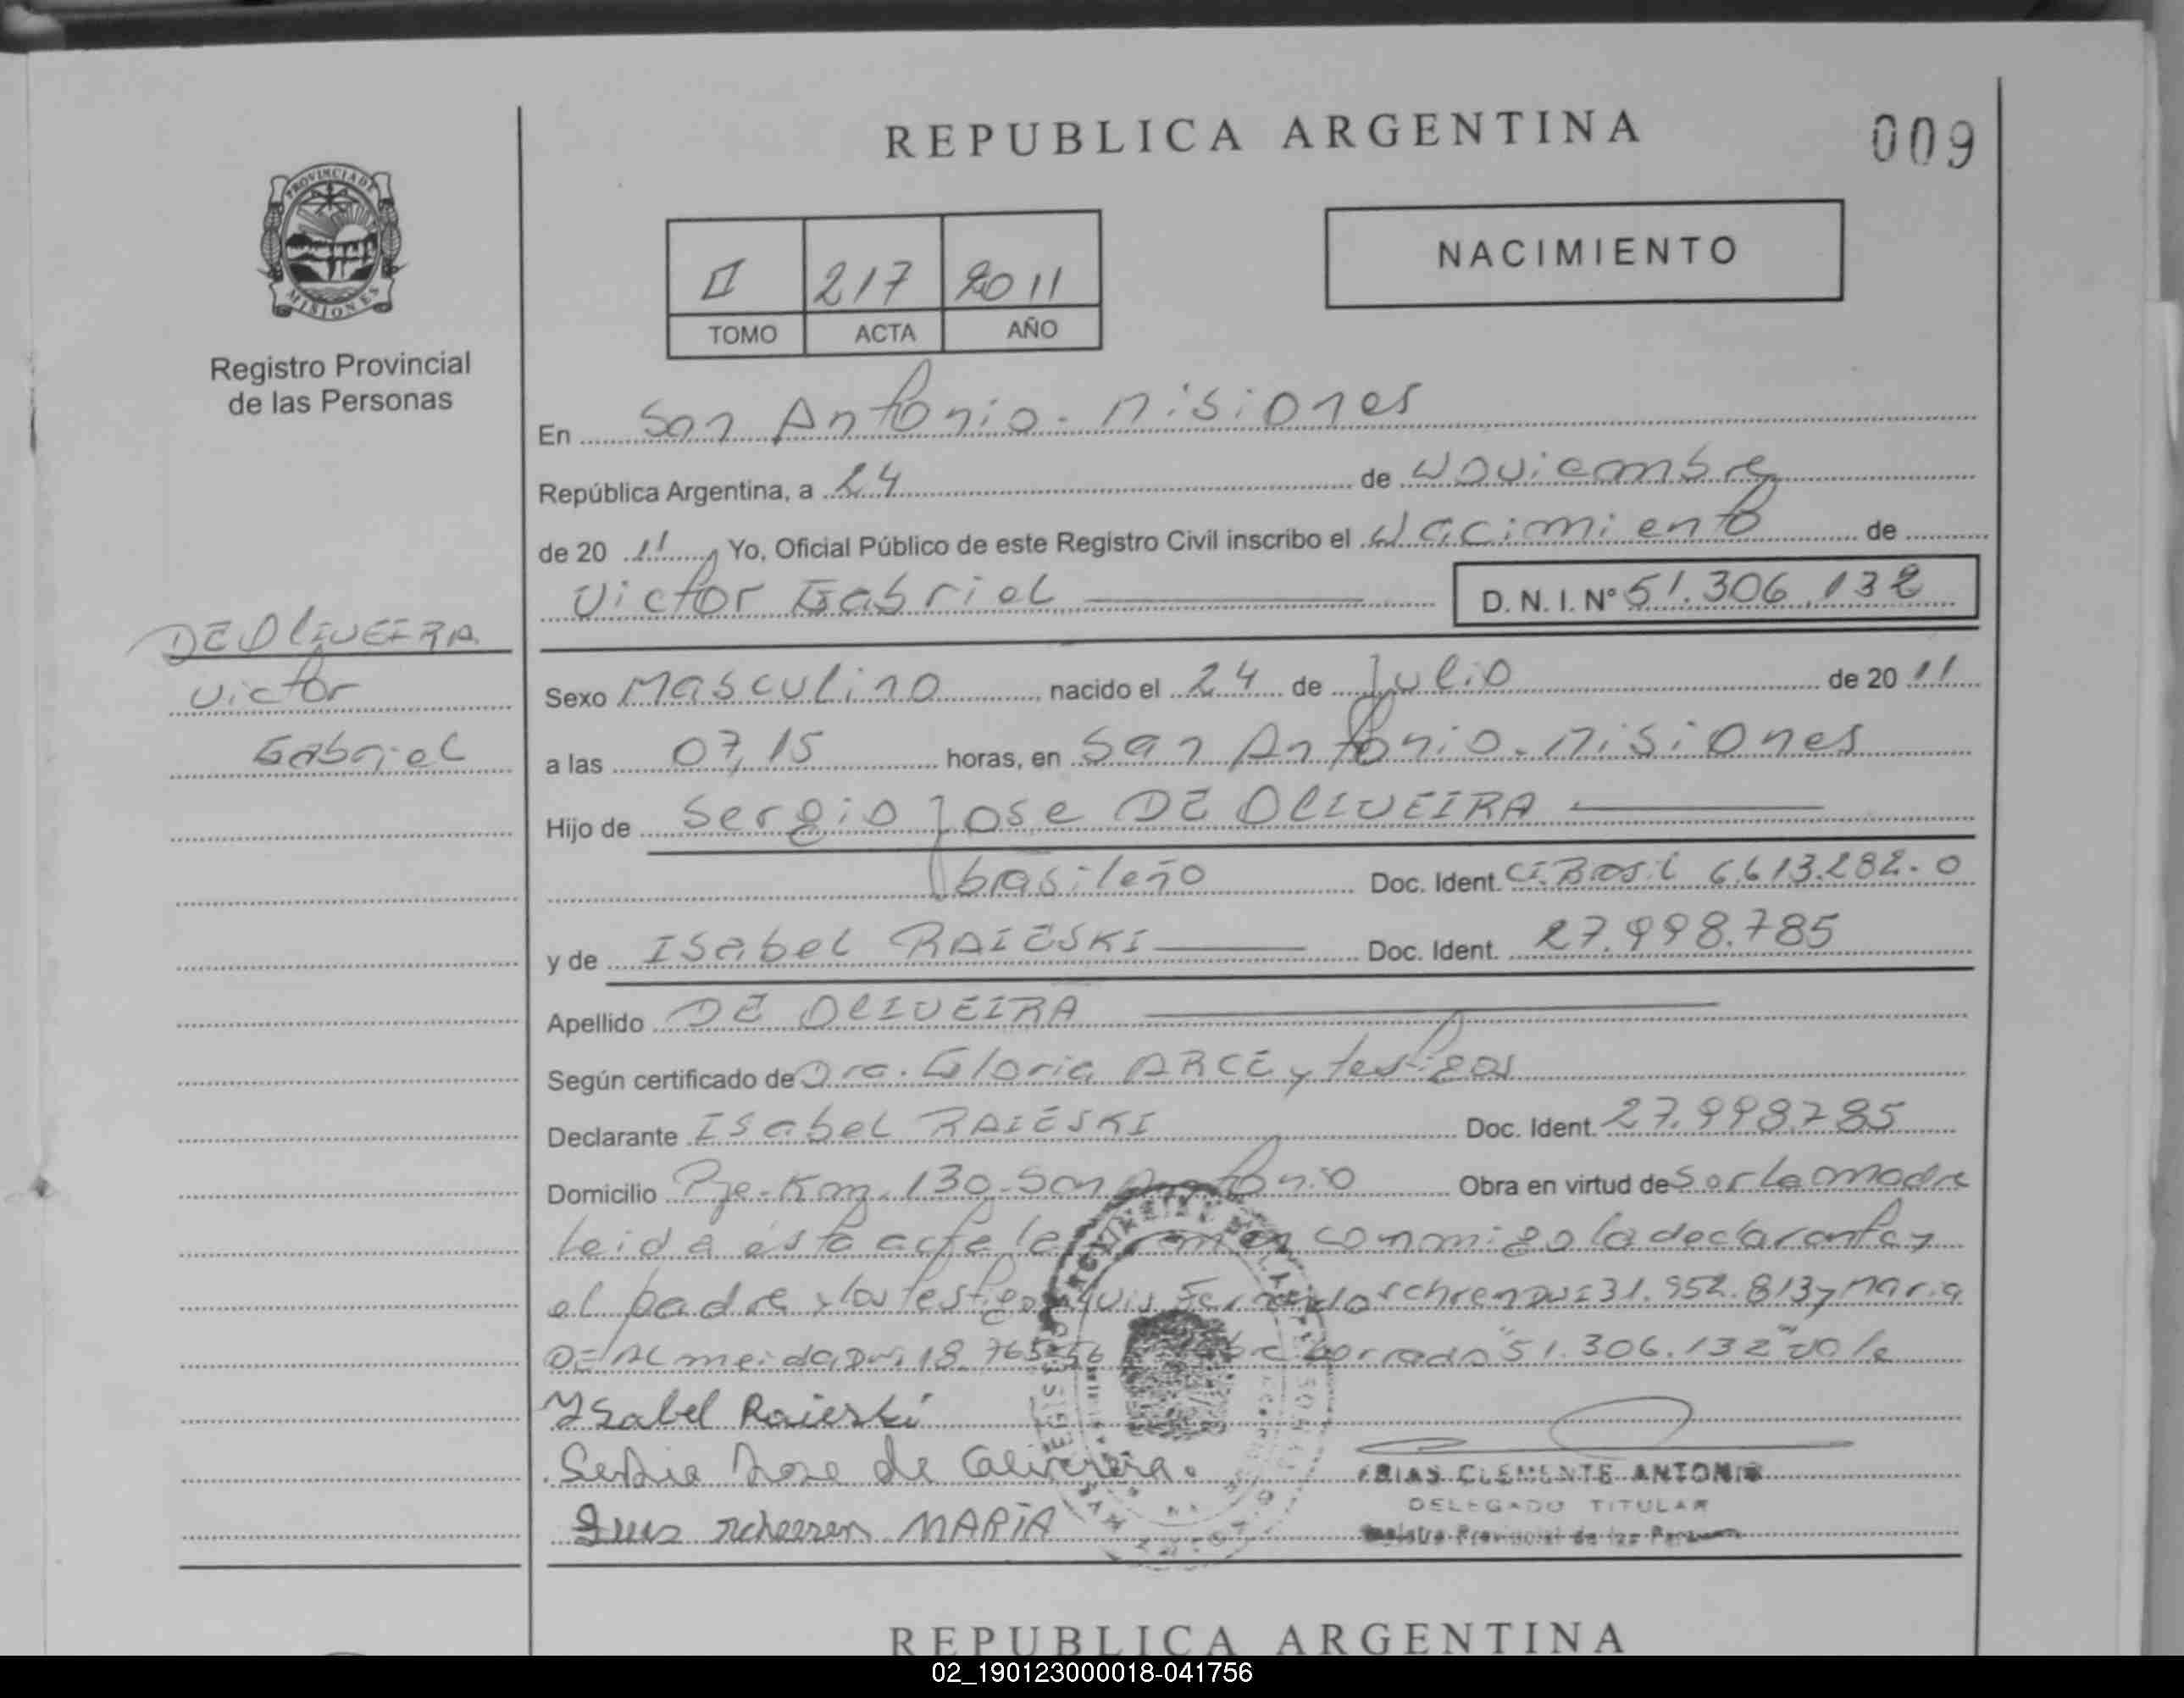 REPUBLICA ARGENTINA
009
PROVINCIA DE
MISIONES
Registro Provincial
de las Personas
II 217 2011
TOMO ACTA AÑO
NACIMIENTO
En San Antonio - Misiones
República Argentina, a 24 de Noviembre
de 20 11 Yo, Oficial Público de este Registro Civil inscribo el Nacimiento de
Victor Gabriel D. N. I. Nº 51.306.132
DE OLIVEIRA
Victor
Gabriel
Sexo Masculino, nacido el 24 de Julio de 20 11
a las 07,15 horas, en San Antonio - Misiones
Hijo de Sergio Jose DE OLIVEIRA
brasileño Doc. Ident. CI. Brasil 6.613.282-0
y de Isabel RAIESKI Doc. Ident. 27.998.785
Apellido DE OLIVEIRA
Según certificado de Dra. Gloria ARCE y testigos
Declarante Isabel RAIESKI Doc. Ident. 27.998.785
Domicilio Pje. Km. 130 - San Antonio Obra en virtud de Ser la madre
Leida esta acta la firman conmigo la declarante y
el padre y los testigos Luis Fernando Schren DNI 31.952.813 y Maria
DE Almeida DNI 18.765. borrado "51.306.132" vale
Ysabel Raieski
Jose de Oliveira.
Luis scheeren MARIA
FRIAS CLEMENTE ANTONIO
DELEGADO TITULAR
Registro Provincial de las Personas
REPUBLICA ARGENTINA
02_190123000018-041756